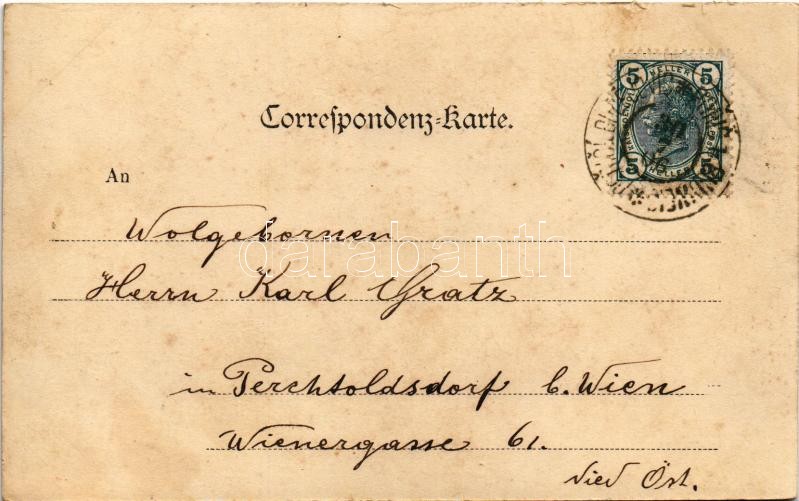 5 HELLER 5
Correspondenz-Karte.
An
Wolgebornen
darabanth
Herrn Karl Gratz
5 HELLER 5
in Perchtoldsdorf b. Wien
Wienergasse 61.
Nied Öst.